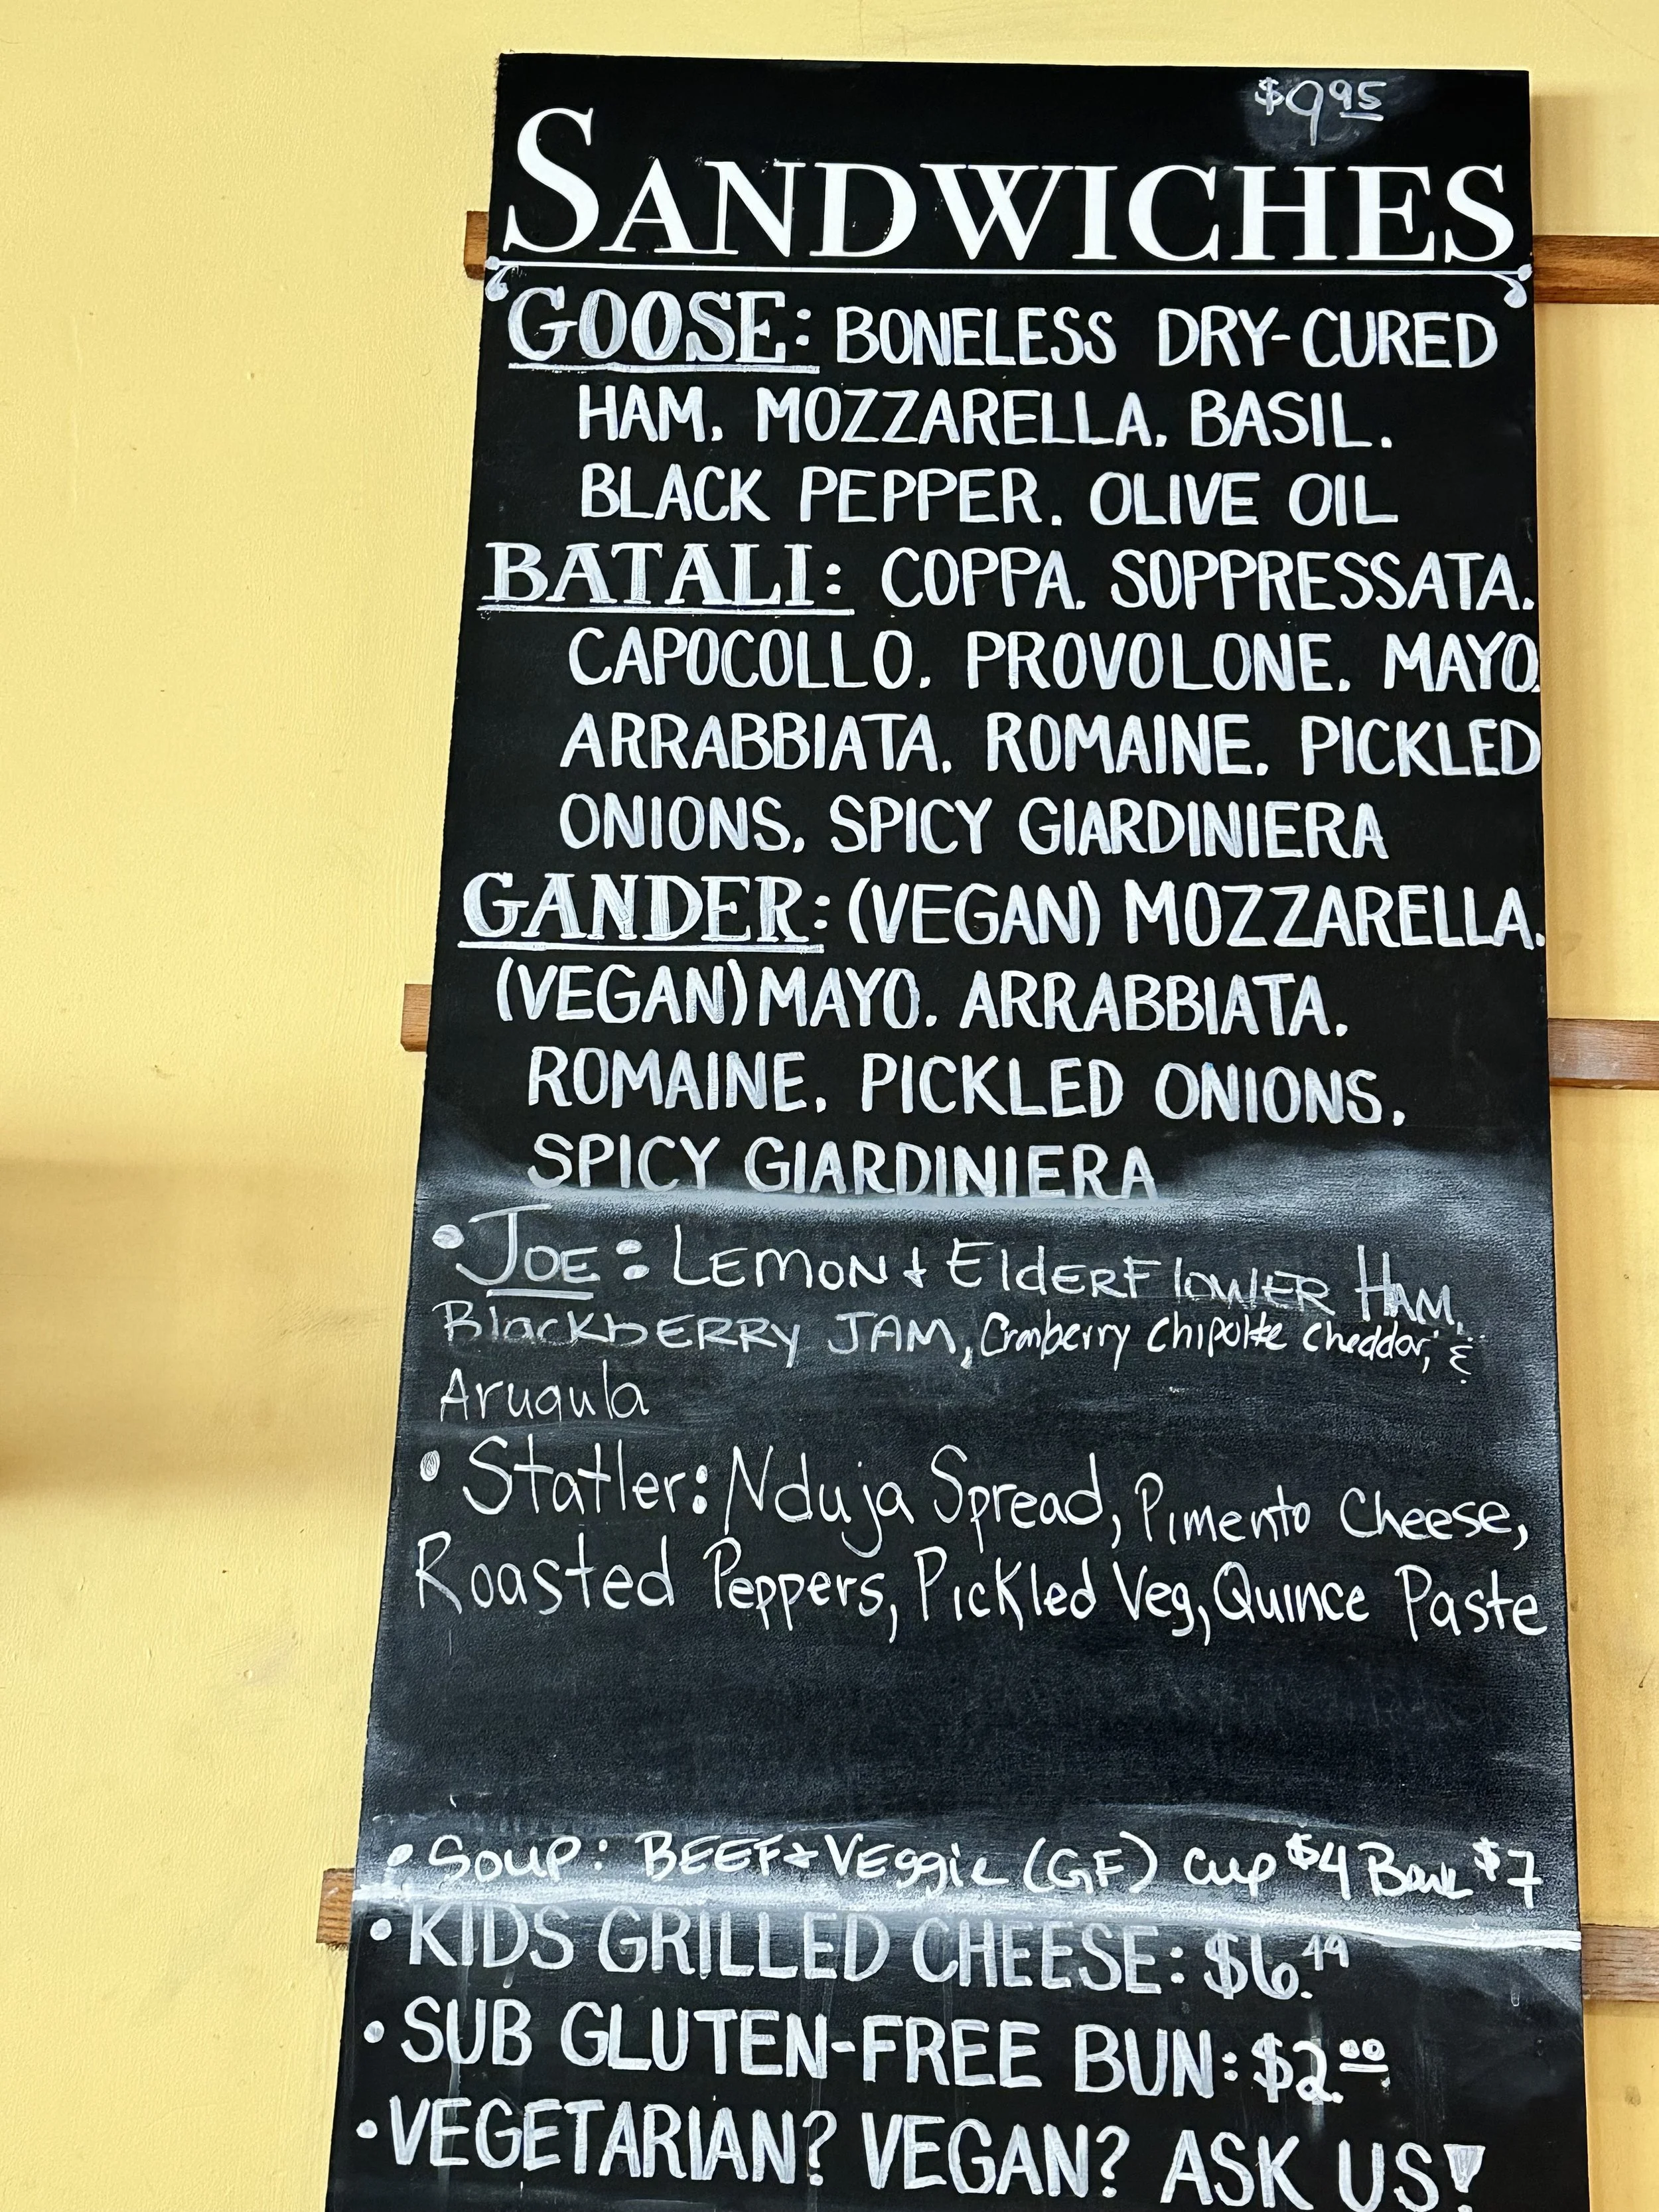 $9.95
SANDWICHES
GOOSE: BONELESS DRY-CURED
HAM, MOZZARELLA, BASIL,
BLACK PEPPER, OLIVE OIL
BATALI: COPPA, SOPPRESSATA,
CAPOCOLLO, PROVOLONE, MAYO,
ARRABBIATA, ROMAINE, PICKLED
ONIONS, SPICY GIARDINIERA
GANDER: (VEGAN) MOZZARELLA,
(VEGAN) MAYO, ARRABBIATA,
ROMAINE, PICKLED ONIONS,
SPICY GIARDINIERA
• JOE: LEMON + ElDERFlOWER HAM,
BlackbERRY JAM, Cranberry Chipolte Cheddar, &
Arugula
• Statler: Nduja Spread, Pimento Cheese,
Roasted Peppers, Pickled Veg, Quince Paste
• Soup: BEEF + VEggie (GF) cup $4 Bowl $7
• KIDS GRILLED CHEESE: $6.49
• SUB GLUTEN-FREE BUN: $2.00
• VEGETARIAN? VEGAN? ASK US!